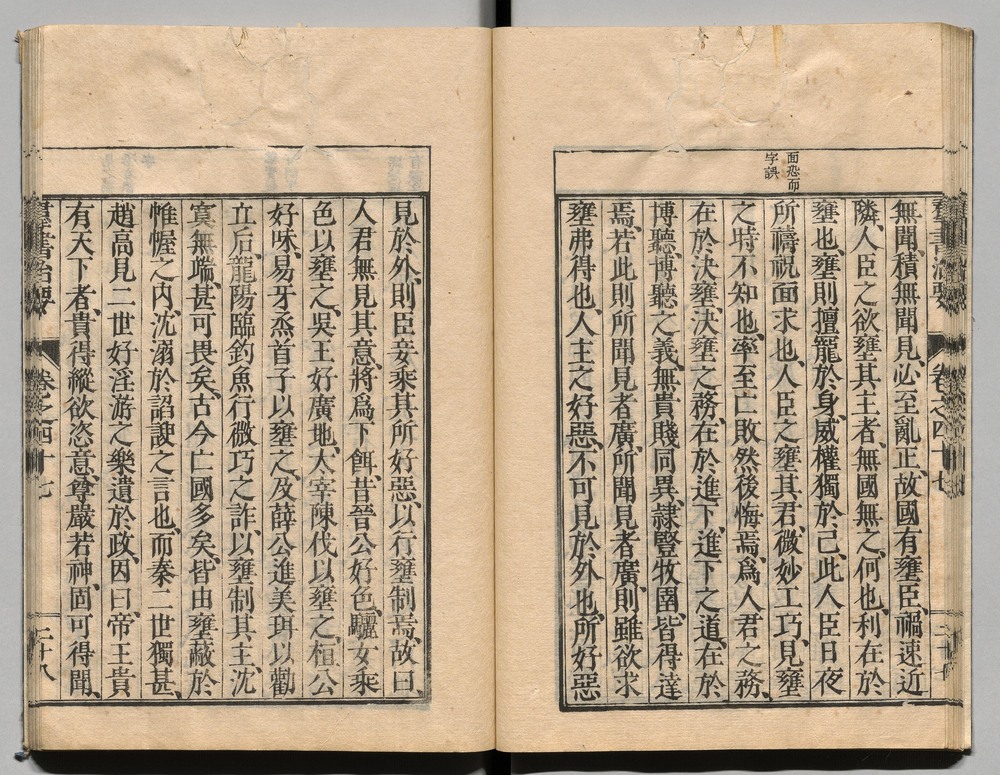 羣書治要 卷之四十七 二十七
面恐而
字誤
無聞積無聞見、必至亂正、故國有壅臣、禍速近
隣、人臣之欲壅其主者、無國無之、何也、利在於
壅也、壅則擅寵於身、威權獨於己、此人臣日夜
所禱祝面求也、人臣之壅其君、微妙工巧、見壅
之時不知也、率至亡敗然後悔焉、爲人君之務、
在於決壅、決壅之務、在於進下、進下之道、在於
博聽、博聽之義、無貴賤同異、隸豎牧圉、皆得達
焉、若此則所聞見者廣、所聞見者廣、則雖欲求
壅弗得也、人主之好惡、不可見於外也、所好惡
見於外、則臣妾乘其所好惡、以行壅制焉、故曰、
人君無見其意、將爲下餌、昔晉公好色、驪女乘
色以壅之、吳王好廣地、太宰陳伐以壅之、桓公
好味、易牙烝首子以壅之、及薛公進美珥以勸
立后、龍陽臨釣魚行微巧之詐、以壅制其主、沈
寞無端、甚可畏矣、古今亡國多矣、皆由壅蔽於
帷幄之內、沈溺於諂諛之言也、而秦二世獨甚、
趙高見二世好淫游之樂遺於政、因曰、帝王貴
有天下者、貴得縱欲恣意、尊嚴若神、固可得聞、
羣書治要 卷之四十七 二十八